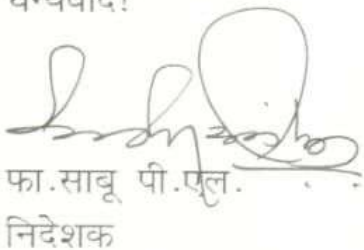 धन्यवाद!
फा.साबू पी.एल.
निदेशक